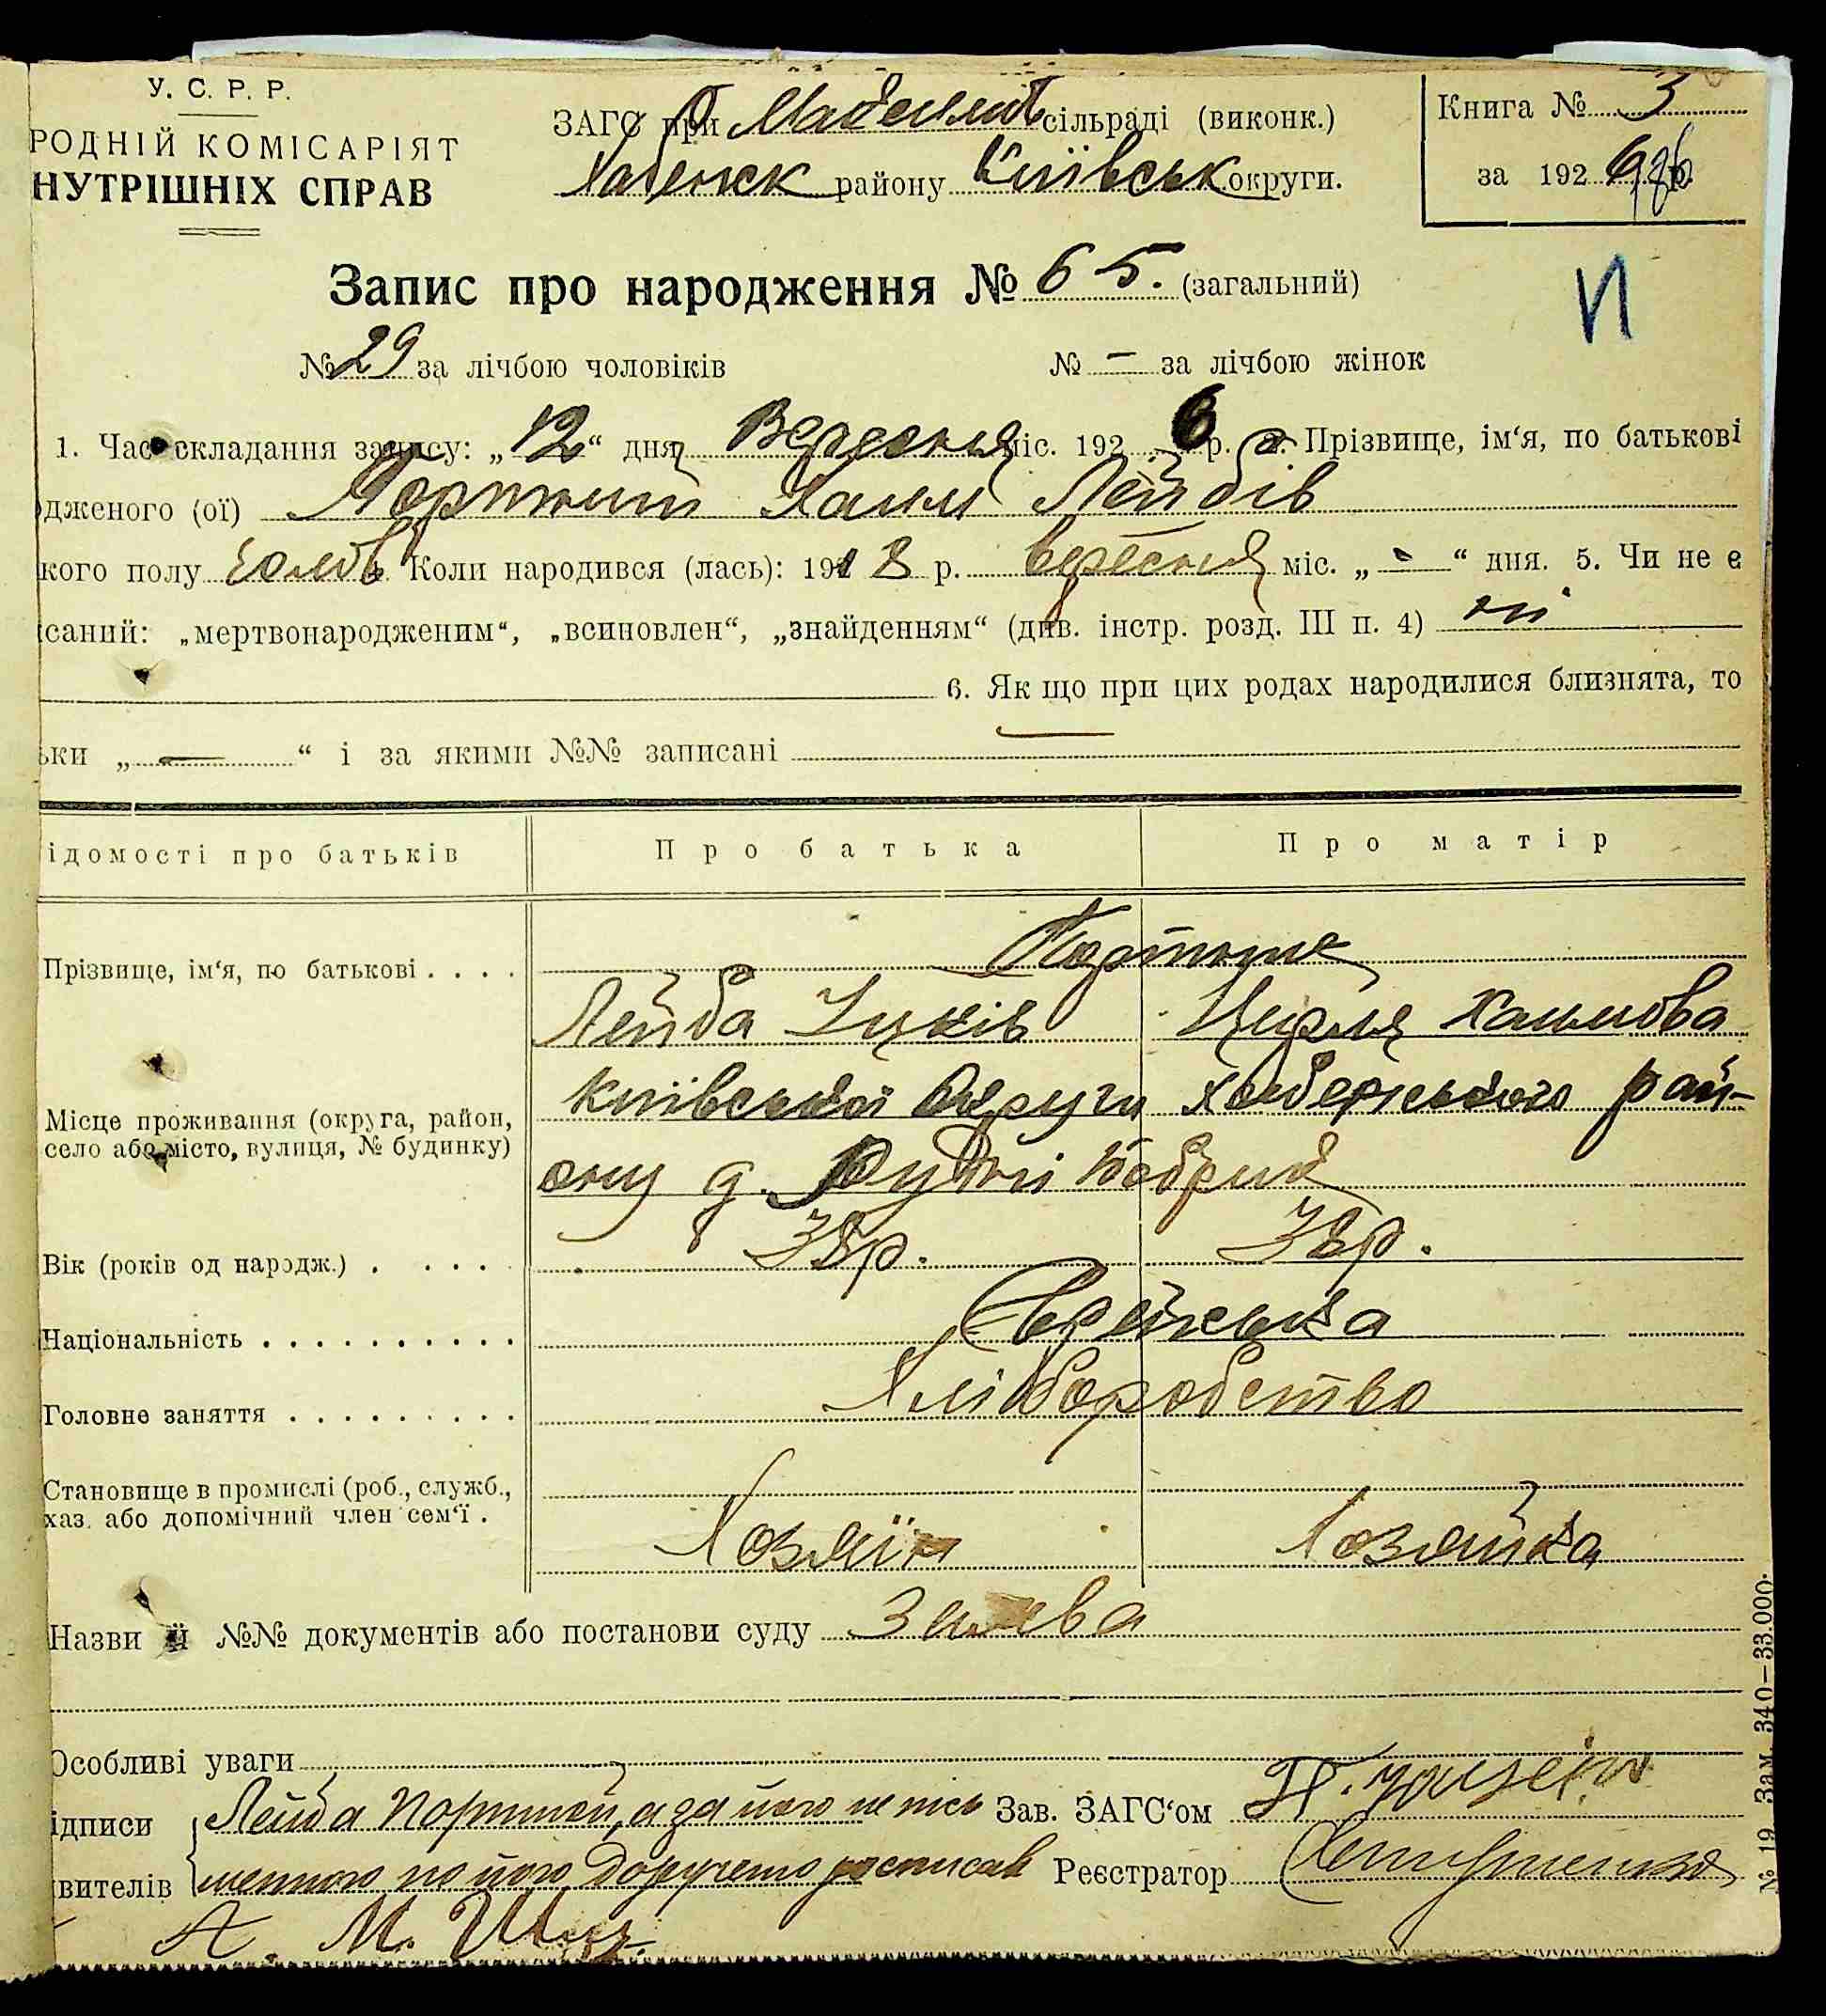 У. С. Р. Р.
РОДНІЙ КОМІСАРІЯТ
НУТРІШНІХ СПРАВ
ЗАГС при сільраді (виконк.)
Хабенск району Київськ округи.
Книга № 3
за 192 6 р.
Запис про народження № 65. (загальний)
И
№ 29 за лічбою чоловіків № — за лічбою жінок
1. Час складання запису: „12“ дня Вересня міс. 192 6 р. 2. Прізвище, ім‘я, по батькові
дженого (ої) Портний Хаим Лейбів
кого полу Коли народився (лась): 191 8 р. вересня міс. „ - “ дня. 5. Чи не є
саний: „мертвонародженим“, „всиновлен“, „знайденням“ (див. інстр. розд. III п. 4) ні
6. Як що при цих родах народилися близнята, то
ьки „ — “ і за якими №№ записані —
ідомості про батьків Про батька Про матір
Прізвище, ім‘я, по батькові . . . .
Лейба Ицків Цирля Хаимова
Місце проживання (округа, район,
село або місто, вулиця, № будинку)
Київської Округи Хабенського рай-
ону д. Рудні
Вік (років од народж.) . . . . . 38р. 38р.
Національність . . . . . . . . . . Єврейська
Головне заняття . . . . . . . . . Хліборобство
Становище в промислі (роб., служб.,
хаз. або допомічний член сем‘ї .
Хозяїн Хозяйка
Назви й №№ документів або постанови суду Заява
Особливі уваги
ідписи Лейба Портной, а за його не пісь Зав. ЗАГС‘ом
явителів менного по його доручено росписав Реєстратор
А. М.
№ 19 Зам. 340—33.000.